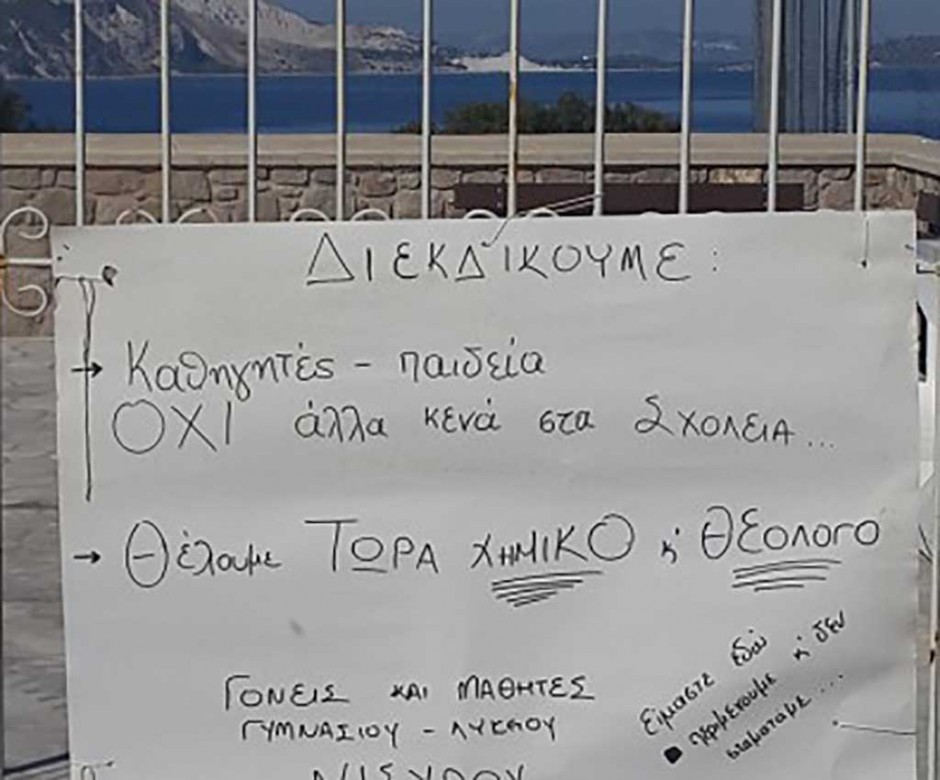 ΔΙΕΚΔΙΚΟΥΜΕ :
→ Καθηγητές - παιδεία
ΟΧΙ άλλα κενά στα ΣΧΟΛΕΙΑ...
→ Θέλουμε ΤΩΡΑ ΧΗΜΙΚΟ κ' ΘΕΟΛΟΓΟ
ΓΟΝΕΙΣ ΚΑΙ ΜΑΘΗΤΕΣ
ΓΥΜΝΑΣΙΟΥ - ΛΥΚΕΙΟΥ
ΝΙΣΥΡΟΥ
Είμαστε εδώ
περιμένουμε κ' δεν
σταματάμε...